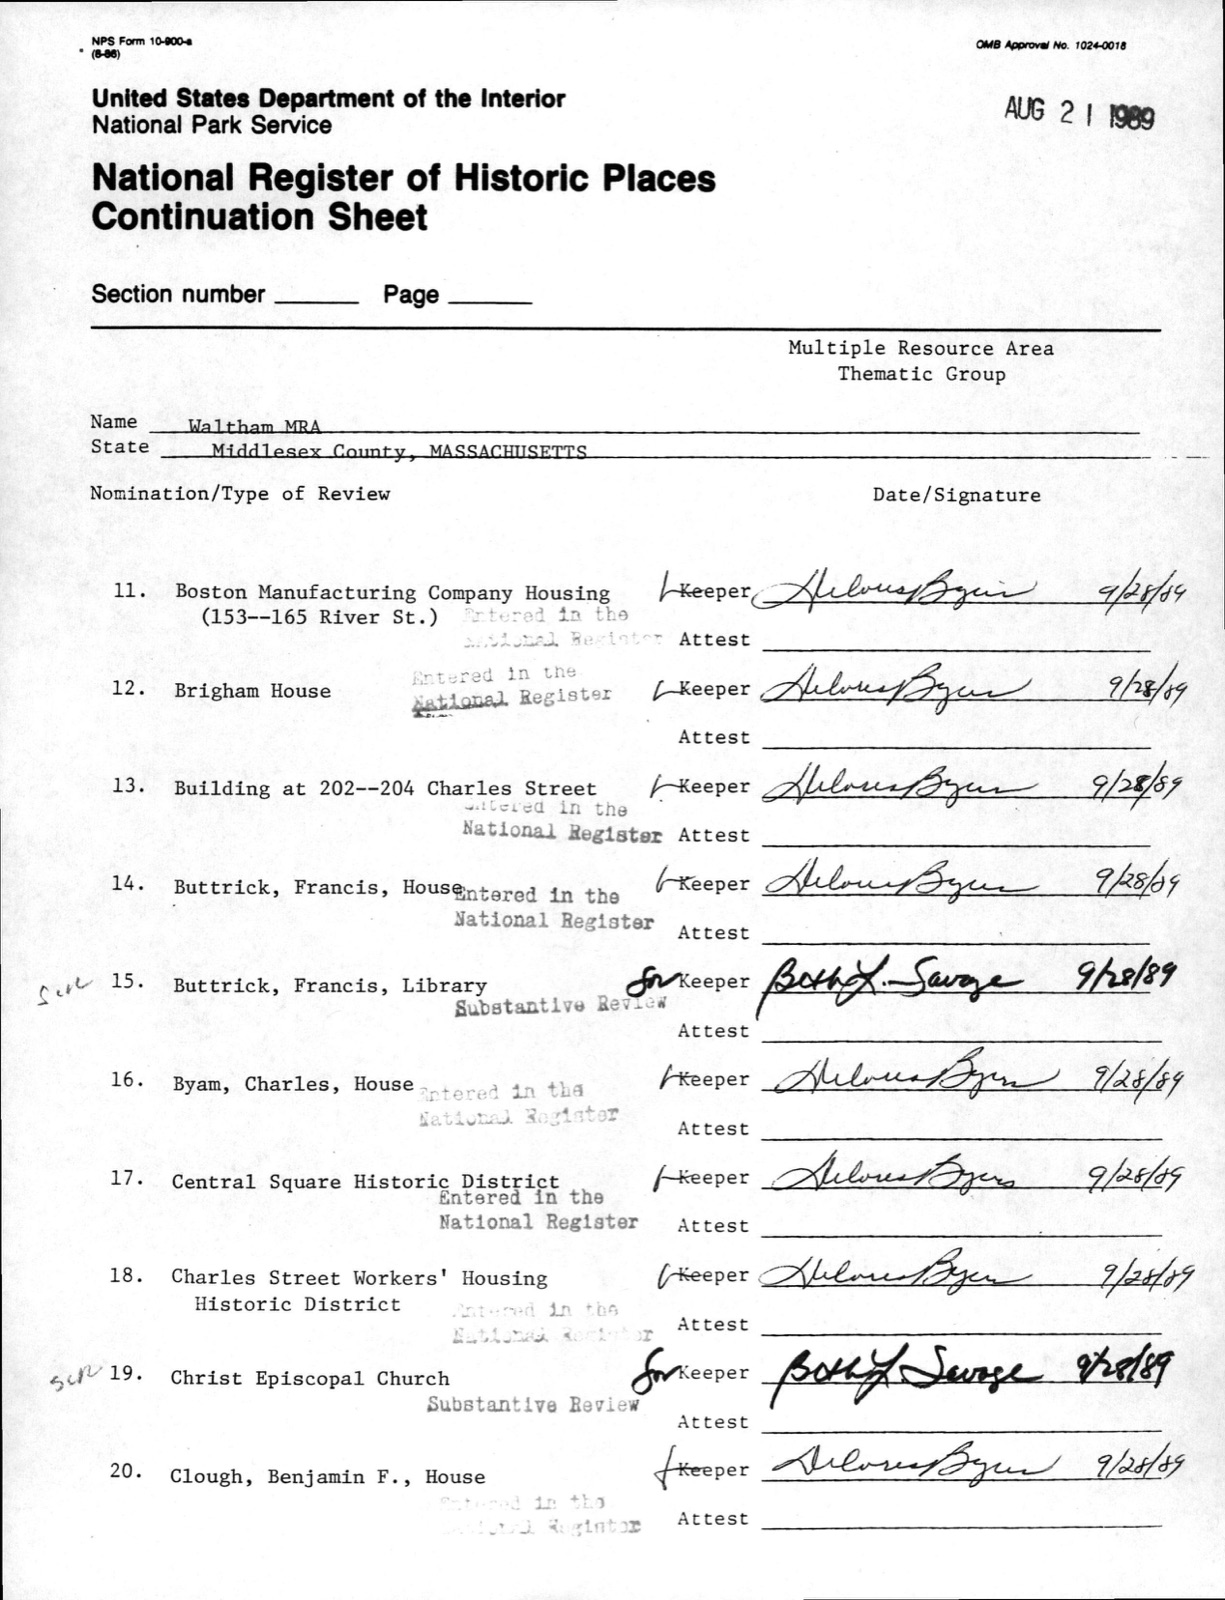 NPS Form 10-900-a
(8-86)
OMB Approval No. 1024-0018
United States Department of the Interior
National Park Service
AUG 21 1989
National Register of Historic Places
Continuation Sheet
Section number ______ Page ______
Multiple Resource Area
Thematic Group
Name Waltham MRA
State Middlesex County, MASSACHUSETTS
Nomination/Type of Review Date/Signature
11. Boston Manufacturing Company Housing Keeper Delores Byers 9/28/89
(153--165 River St.) Entered in the
National Register Attest
Entered in the
12. Brigham House National Register Keeper Delores Byers 9/28/89
Attest
13. Building at 202--204 Charles Street Keeper Delores Byers 9/28/89
Entered in the
National Register Attest
14. Buttrick, Francis, House Keeper Delores Byers 9/28/89
Entered in the
National Register Attest
15. Buttrick, Francis, Library for Keeper Beth L. Savage 9/28/89
Substantive Review
Attest
16. Byam, Charles, House Keeper Delores Byers 9/28/89
Entered in the
National Register Attest
17. Central Square Historic District Keeper Delores Byers 9/28/89
Entered in the
National Register Attest
18. Charles Street Workers' Housing Keeper Delores Byers 9/28/89
Historic District Entered in the
National Register Attest
19. Christ Episcopal Church for Keeper Beth L Savage 9/28/89
Substantive Review
Attest
20. Clough, Benjamin F., House Keeper Delores Byers 9/28/89
Entered in the
National Register Attest